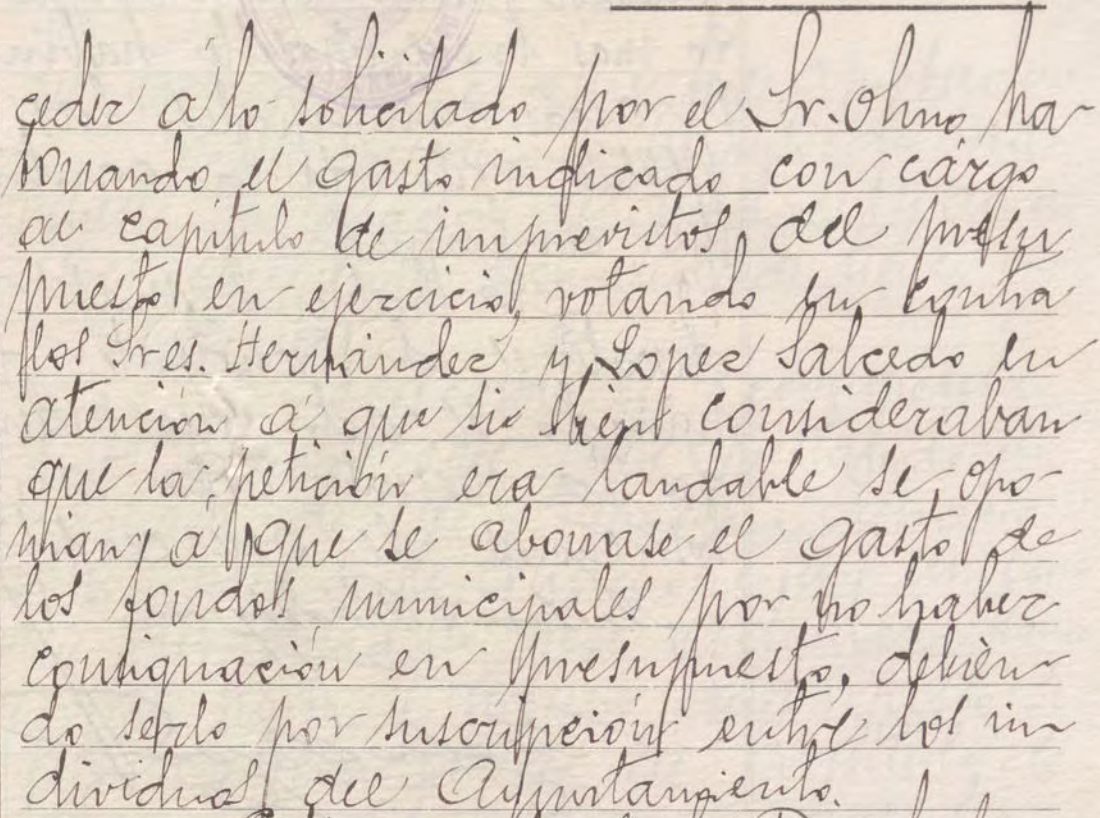 ceder á lo solicitado por el Sr. Olmo ha-
bonando el gasto indicado con cargo
al capítulo de imprevistos, del presu
puesto en ejercicio, votando en contra
los Sres. Hernández y Lopez Salcedo en
atención á que si bien consideraban
que la petición era laudable se opo-
nian á que se abonase el gasto de
los fondos municipales por no haber
consignación en presupuesto, debien-
do serlo por suscripción entre los in
dividuos del Ayuntamiento.